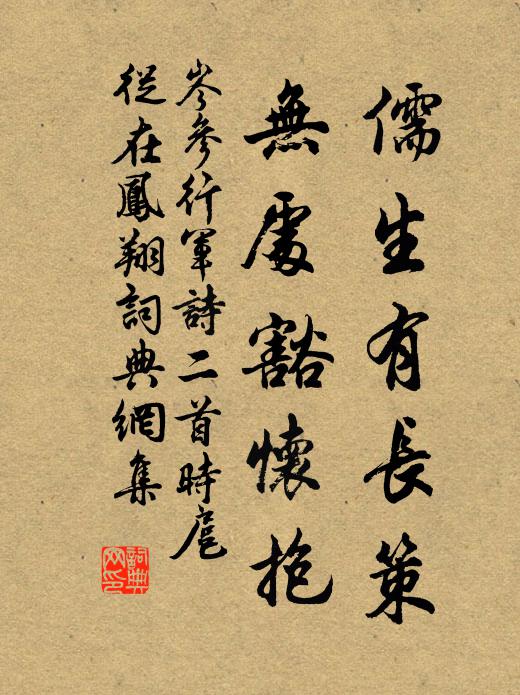 儒生有長策
無處豁懷抱
岑參行軍詩二首時扈
從在鳳翔詞典網集
詞典網印